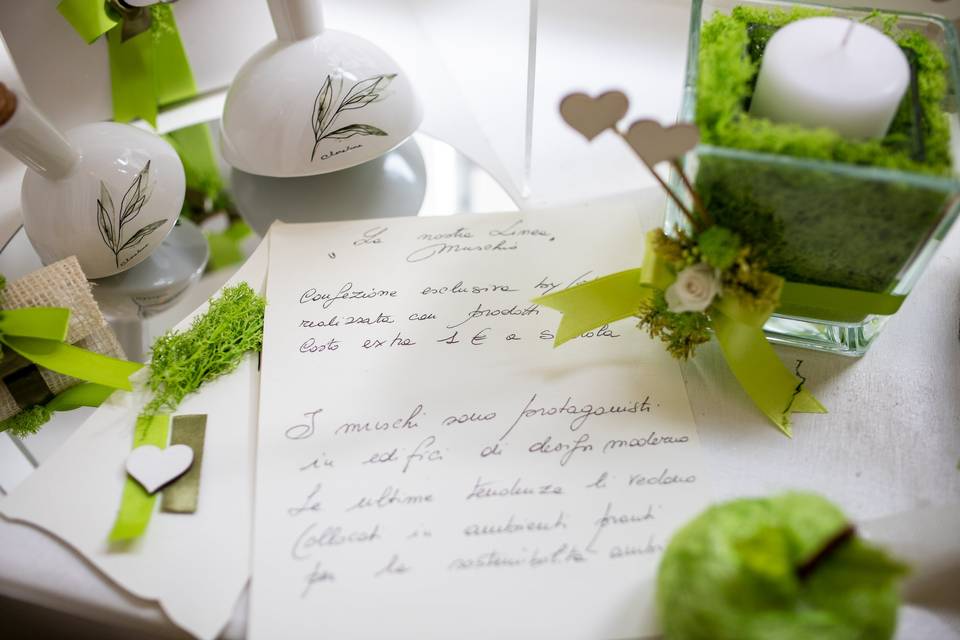 "La nostra Linea
Muschio"
Confezione esclusiva by
realizzata con prodotti
Costo extra 1 € a scatola
I muschi sono protagonisti
in edifici di design moderno
Le ultime tendenze li vedono
Collocati in ambienti pronti
per la sostenibilità